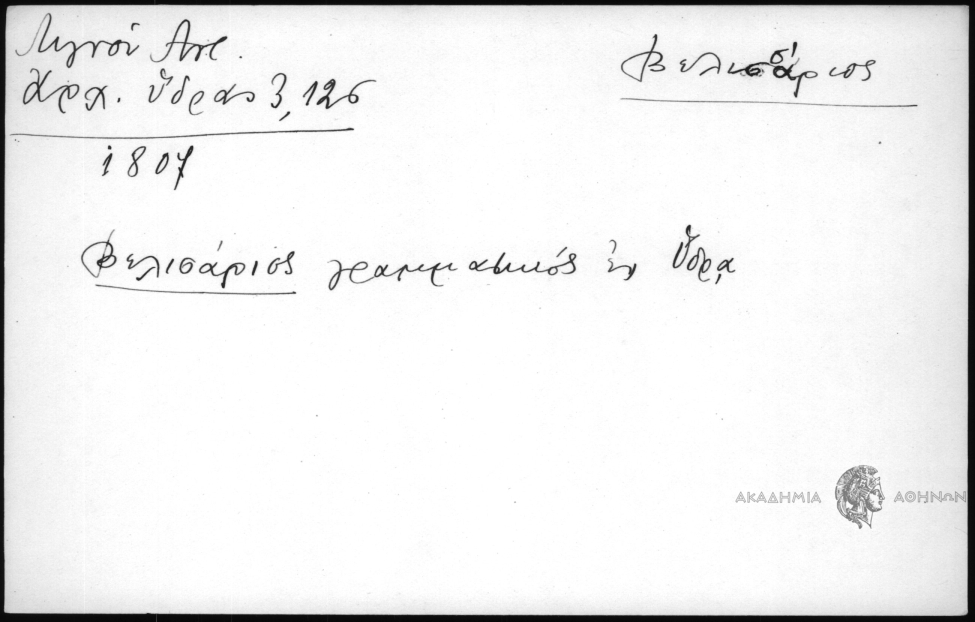 Λιγνού Αντ.
Ἀρχ. Ὕδρας 3, 126
Βελισσάριος
1807
Βελισάριος γραμματικός ἐν Ὕδρᾳ
ΑΚΑΔΗΜΙΑ ΑΘΗΝΩΝ